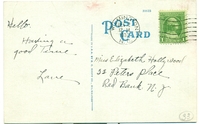 POST
CARD
Hello.
Having a
good time.
Love
Miss Elizabeth Hollywood
33 Peters Place
Red Bank N. J.